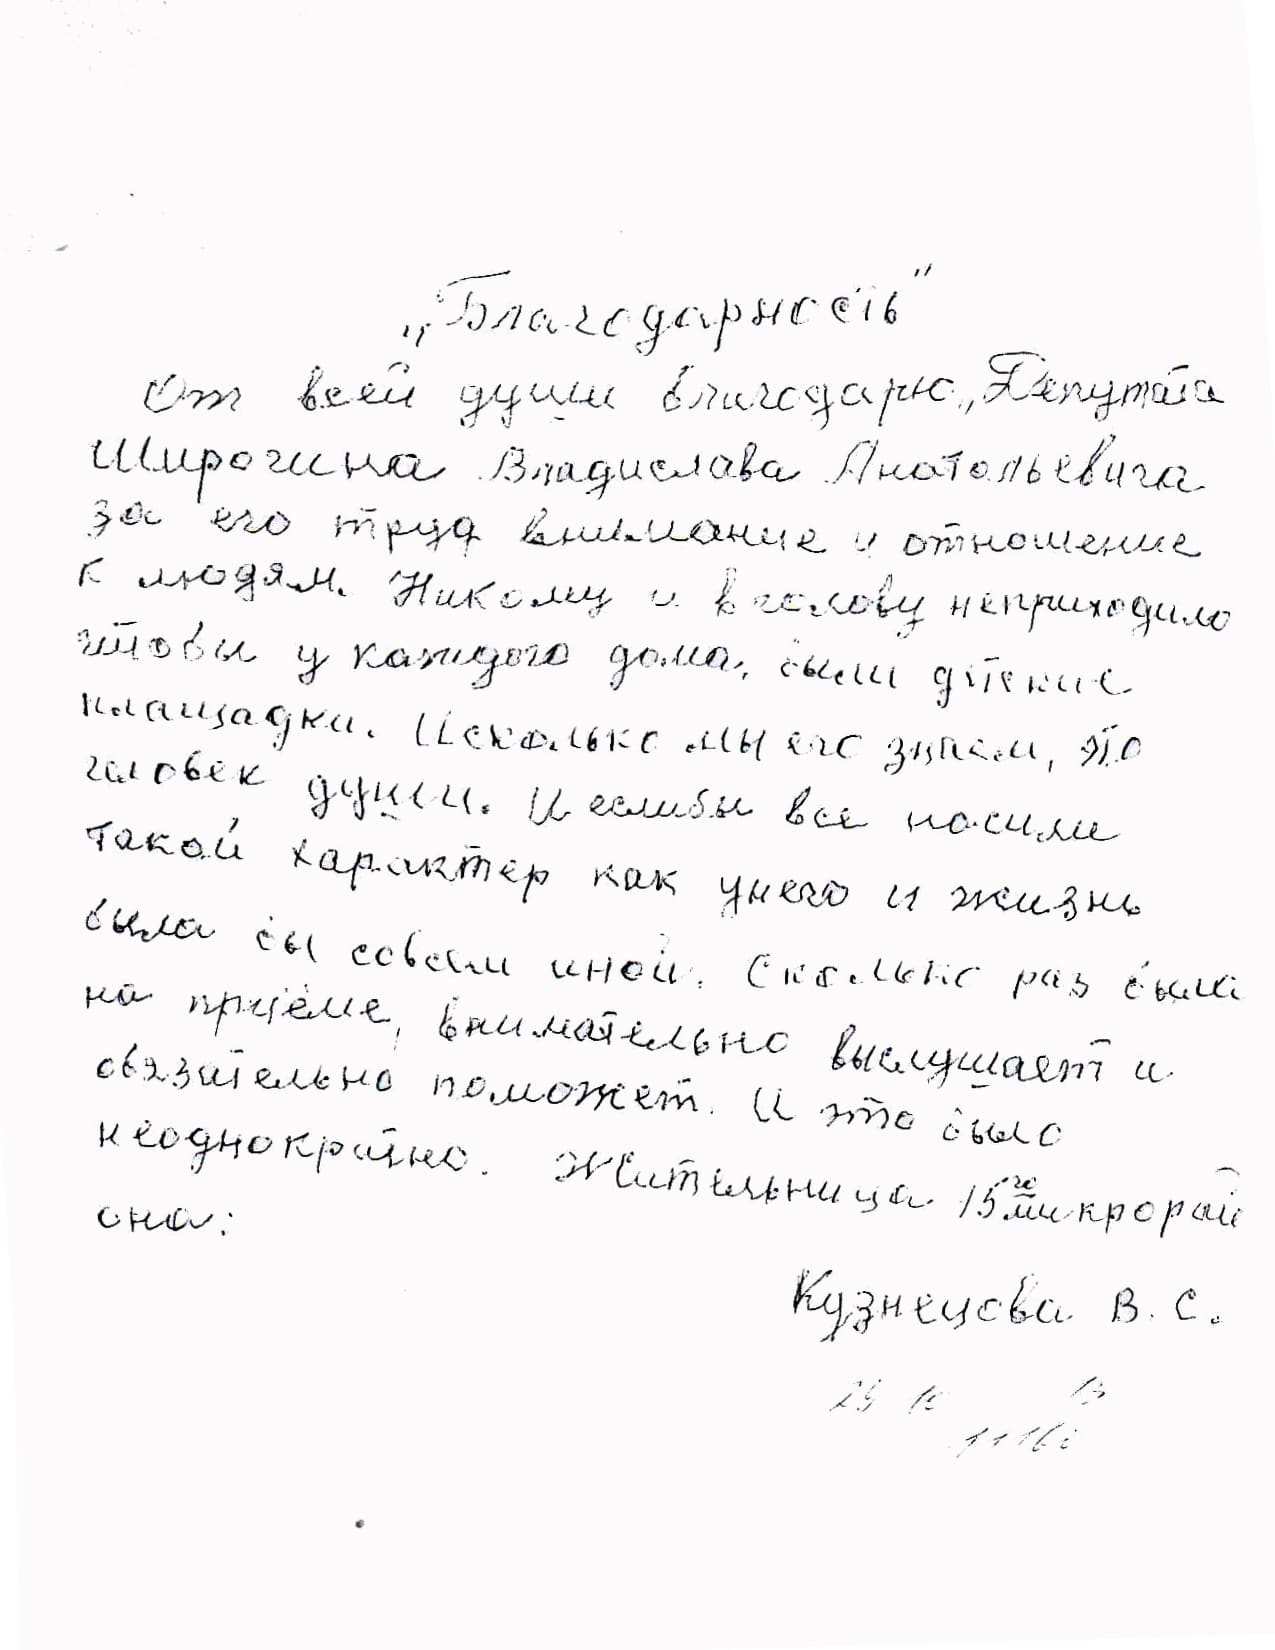 „Благодарность"
От всей души благодарю „Депутата
Широчина Владислава Анатольевича
за его труд внимание и отношение
к людям. Никому и вголову неприходило
чтобы у каждого дома, были детские
площадки. Исколько мы его знаем, это
человек души. И еслибы все носили
такой характер как унего и жизнь
была бы совсем иной. Сколько раз была
на приёме, внимательно выслушает и
обязательно поможет. И это было
неоднократно. Жительница 15го микрорай
она:
Кузнецова В. С.